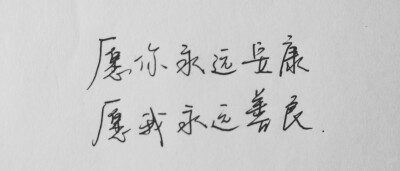 愿你永远安康
愿我永远善良.